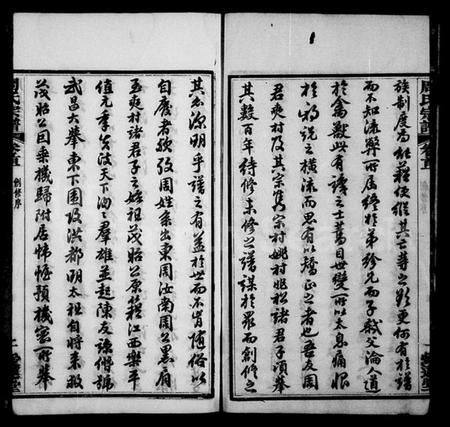 周氏宗譜
卷首
族制度為能藉使維其亡等之於更何有於譜
而不知流弊所屆終於弟紾兄而子弒父淪人道
於禽獸世有讀之士蒿目世變所以太息痛恨
於初說之橫流而思有以矯正之者也吾友周
君爽村及其宗雋宗村姚村姚松諸君子頃舉
其數百年待修未修之譜謀於眾而創修之
其知源明乎譜之有益於世而不肯隨俗以
自處者歟攷周姓系出東周汝南周公黑肩
至爽村諸君子之始祖茂昭公原籍江西樂平
值元季兵汝天下洶洶群雄並起陳友諒僭號
武昌大舉東下圍攻洪都明太祖自將來救
茂昭公因乘機歸附居帷幄預機密所舉
周氏宗譜
卷首
創修序